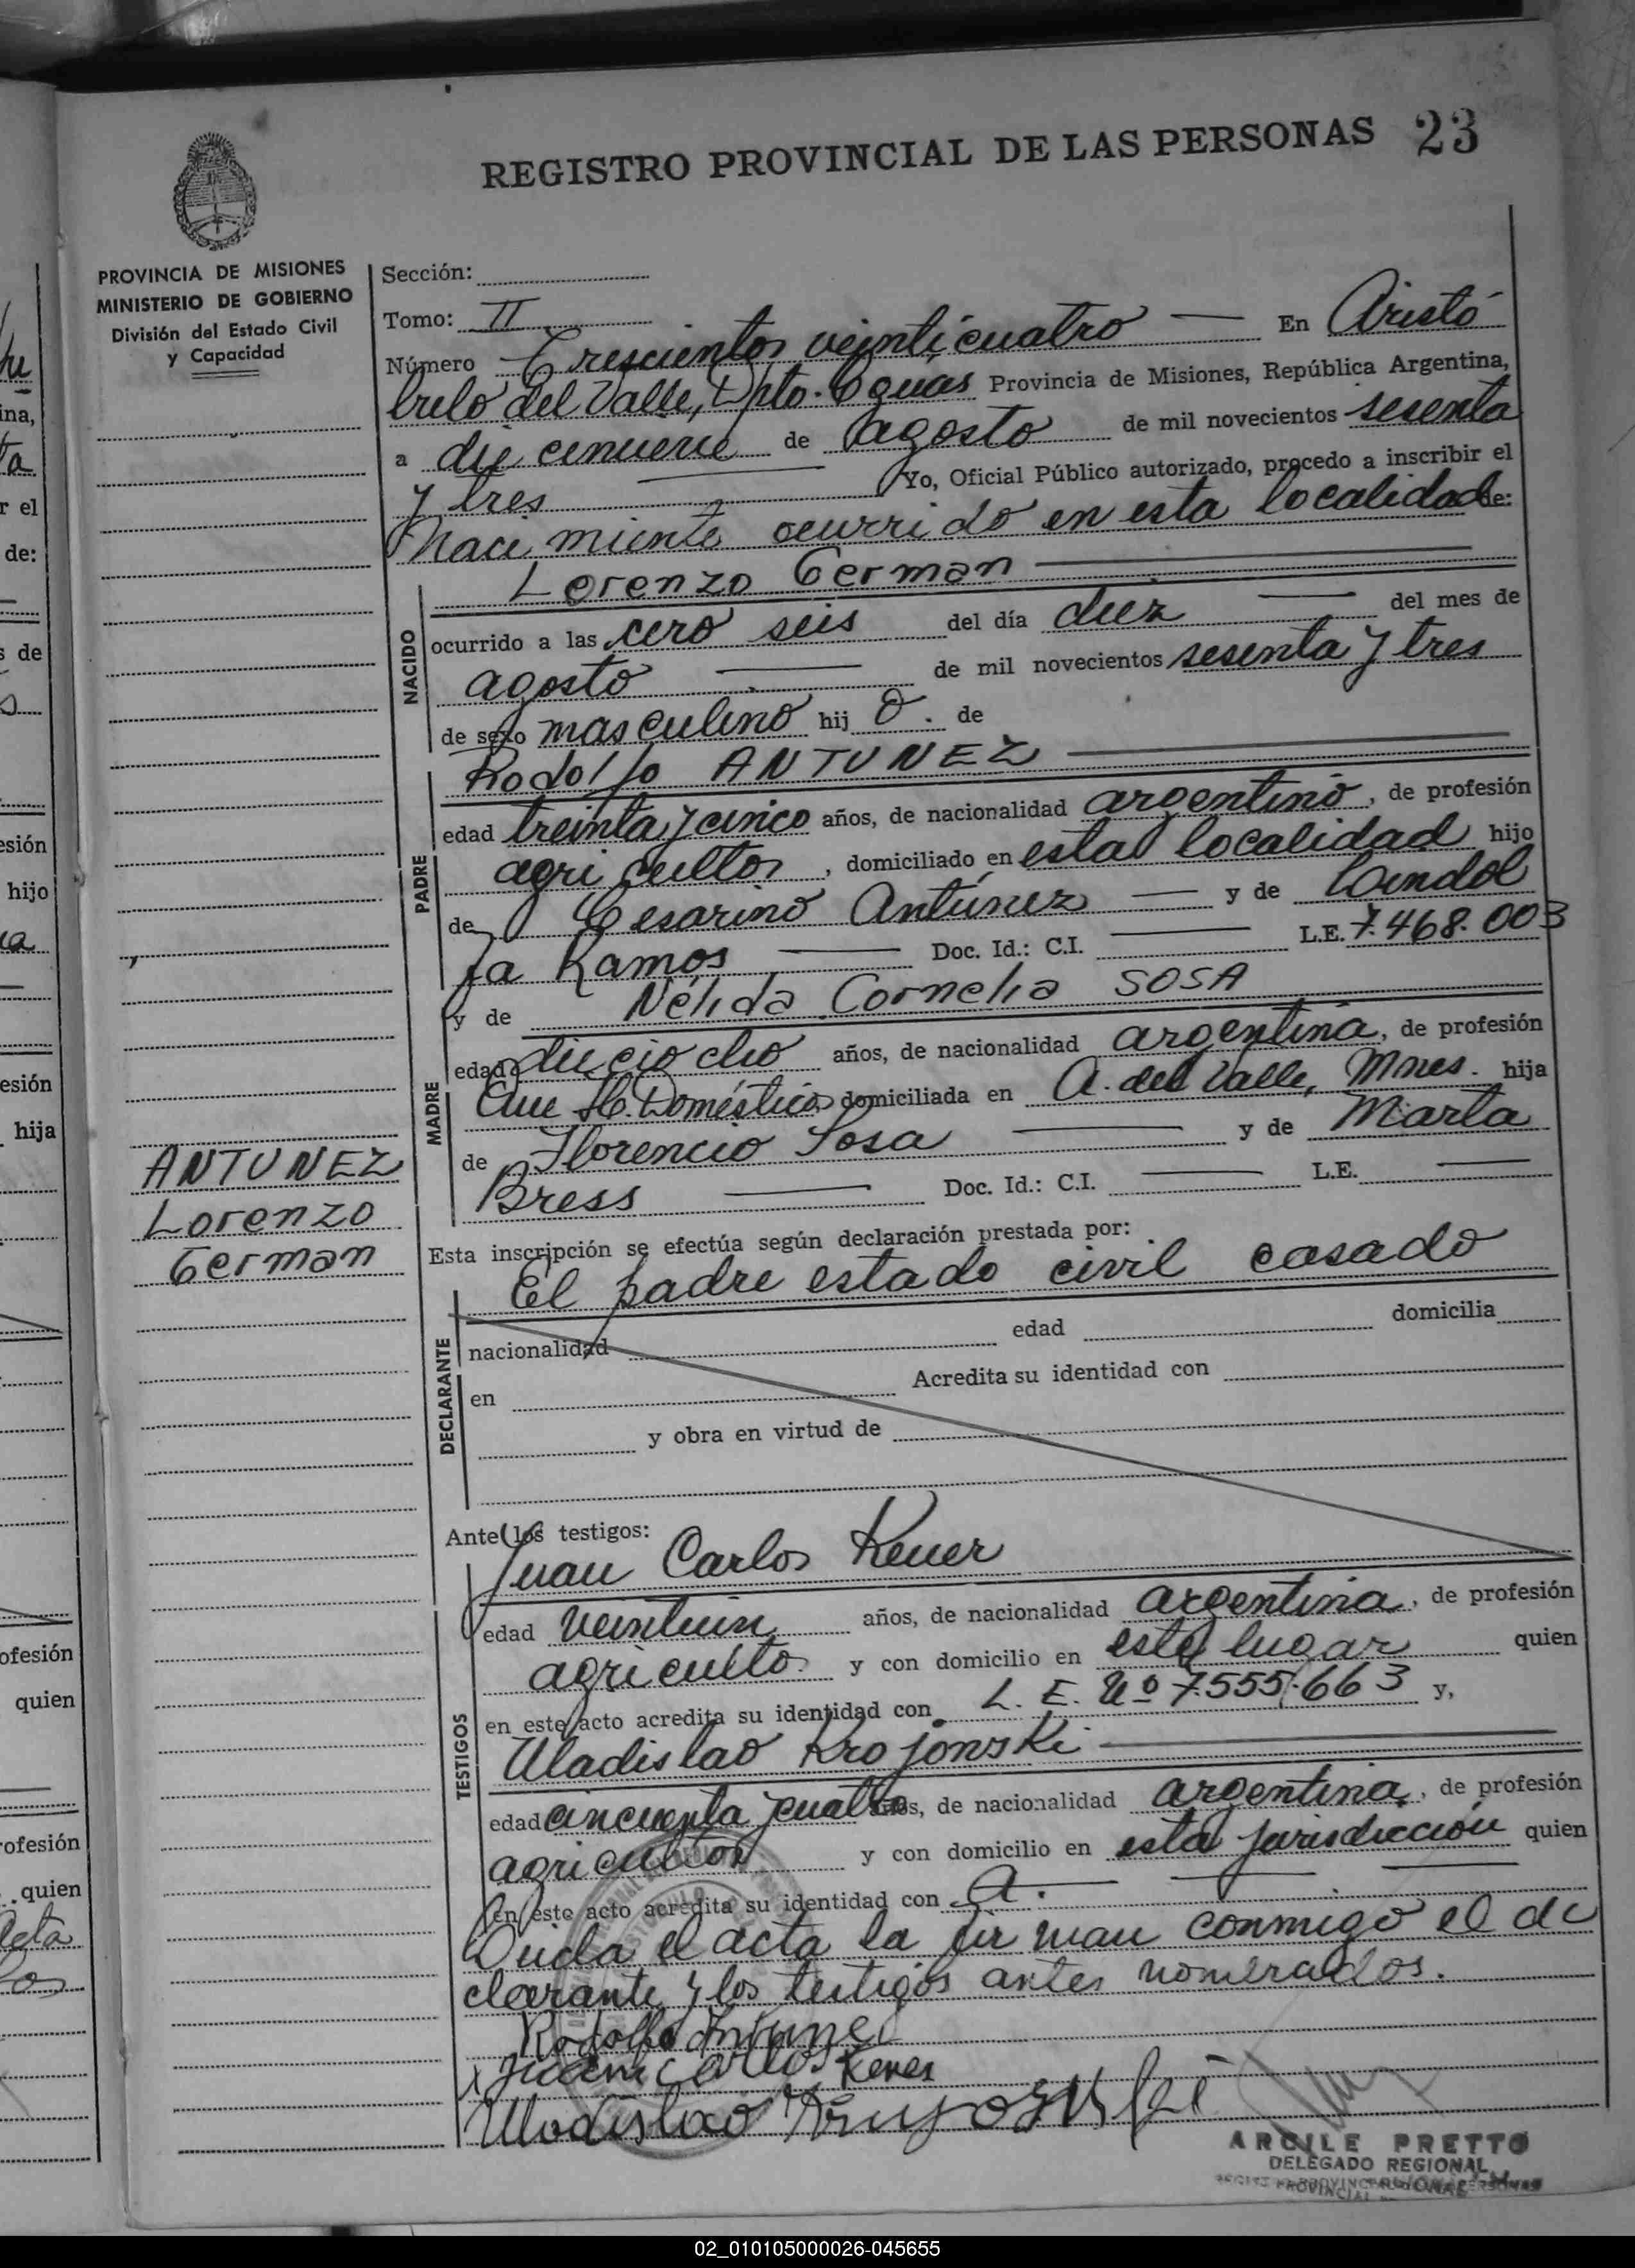 REGISTRO PROVINCIAL DE LAS PERSONAS 23
PROVINCIA DE MISIONES
MINISTERIO DE GOBIERNO
División del Estado Civil
y Capacidad
Sección:
Tomo: II
Número Trescientos veinticuatro — En Aristó
bulo del Valle, Dpto. Cguás Provincia de Misiones, República Argentina,
a diecinueve de agosto de mil novecientos sesenta
y tres — Yo, Oficial Público autorizado, procedo a inscribir el
Nacimiento ocurrido en esta localidad de:
NACIDO
Lorenzo German —
ocurrido a las cero seis del día diez — del mes de
agosto — de mil novecientos sesenta y tres
de sexo masculino hij o. de
PADRE
Rodolfo ANTUNEZ —
edad treinta y cinco años, de nacionalidad argentino, de profesión
agricultor, domiciliado en esta localidad hijo
de Cesarino Antúnez — y de Candol
fa Ramos — Doc. Id.: C.I. — L.E. 7.468.003
y de Nélida Cornelia SOSA
MADRE
edad dieciocho años, de nacionalidad argentina, de profesión
Que H. Domésticos domiciliada en A. del Valle, Mnes. hija
de Florencio Sosa — y de Marta
Bress — Doc. Id.: C.I. — L.E. —
ANTUNEZ
Lorenzo
German
Esta inscripción se efectúa según declaración prestada por:
El padre estado civil casado
DECLARANTE
nacionalidad edad domicilia
en Acredita su identidad con
y obra en virtud de
Ante los testigos:
Juan Carlos Keuer
TESTIGOS
edad veintiun años, de nacionalidad argentina, de profesión
agriculto. y con domicilio en este lugar quien
en este acto acredita su identidad con L. E. Nº 7.555.663 y,
Uladislao Krojonski —
edad cincuenta y cuatro años, de nacionalidad argentina, de profesión
agricultor y con domicilio en esta jurisdicción quien
en este acto acredita su identidad con —
Leida el acta la firman conmigo el de
clarante y los testigos antes nombrados.
Rodolfo Antunez
Juan Carlos Kener
Uladislao
ARCILE PRETTO
DELEGADO REGIONAL
02_010105000026-045655